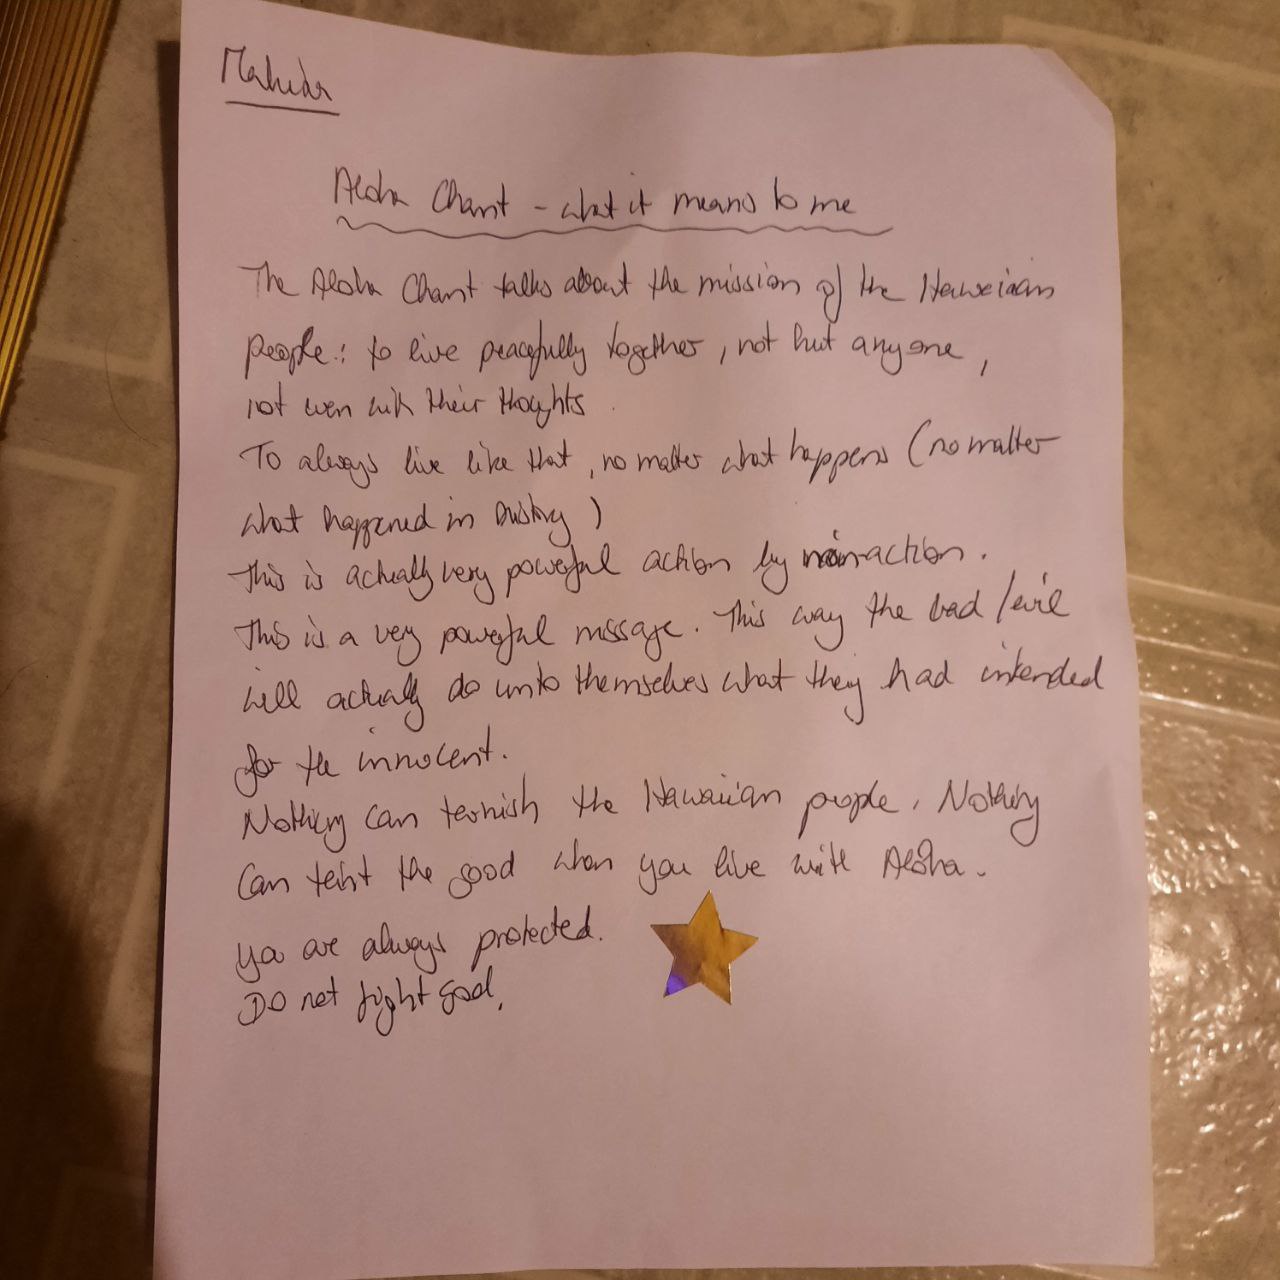 Aloha Chant - what it means to me
The Aloha Chant talks about the mission of the Haweiian
people: to live peacefully together, not hut anyone,
not even with their thoughts.
To always live like that, no matter what happens (no matter
what happened in )
This is actually very powerful action by action.
This is a very powerful message. This way the bad/evil
will actually do unto themselves what they had intended
for the innocent.
Nothing can ternish the Hawaiian people. Nothing
can teint the good when you live with Aloha.
You are always protected.
Do not fight God.